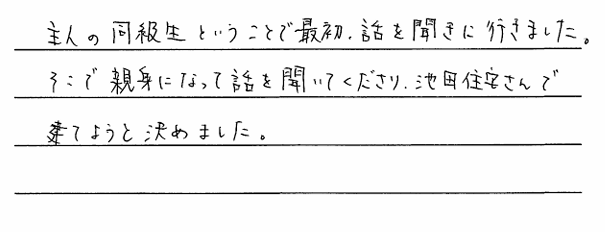 主人の同級生ということで最初、話を聞きに行きました。
そこで親身になって話を聞いてくださり、池田住宅さんで
建てようと決めました。